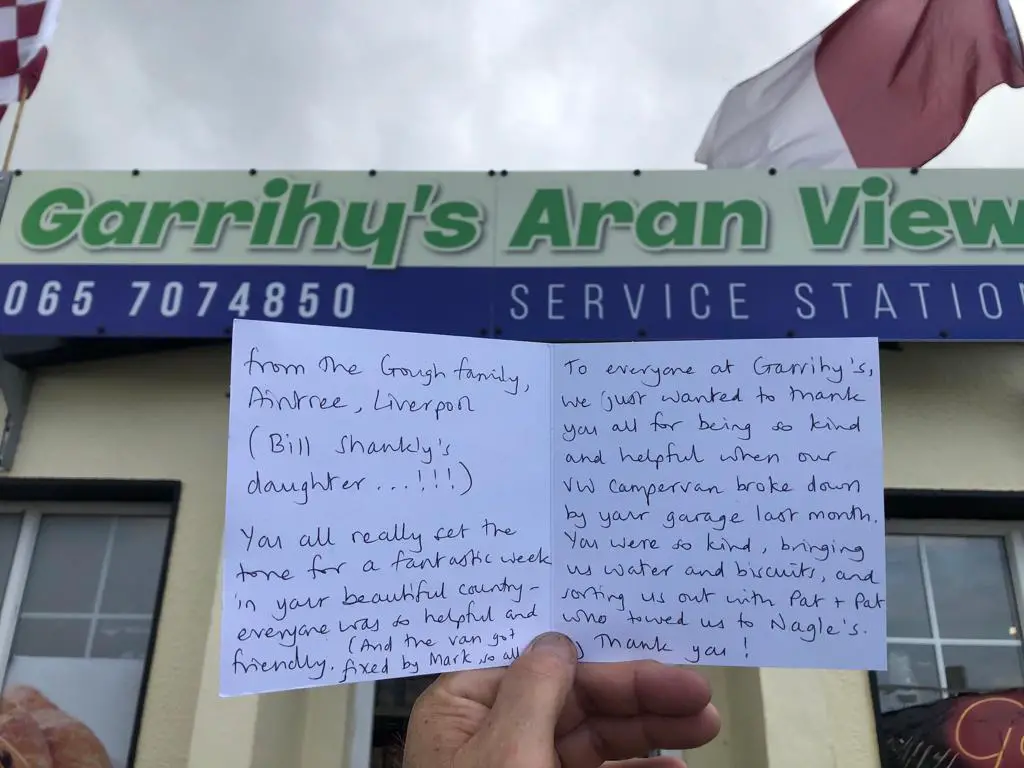 Garrihy's Aran View
065 7074850 SERVICE STATIO
from the Gough family,
Aintree, Liverpool
(Bill Shankly's
daughter...!!!!)
You all really set the
tone for a fantastic week
in your beautiful country-
everyone was so helpful and
friendly. (And the van got
fixed by Mark so all
To everyone at Garrihy's,
we just wanted to thank
you all for being so kind
and helpful when our
VW campervan broke down
by your garage last month.
You were so kind, bringing
us water and biscuits, and
sorting us out with Pat + Pat
who towed us to Nagle's.
Thank you!